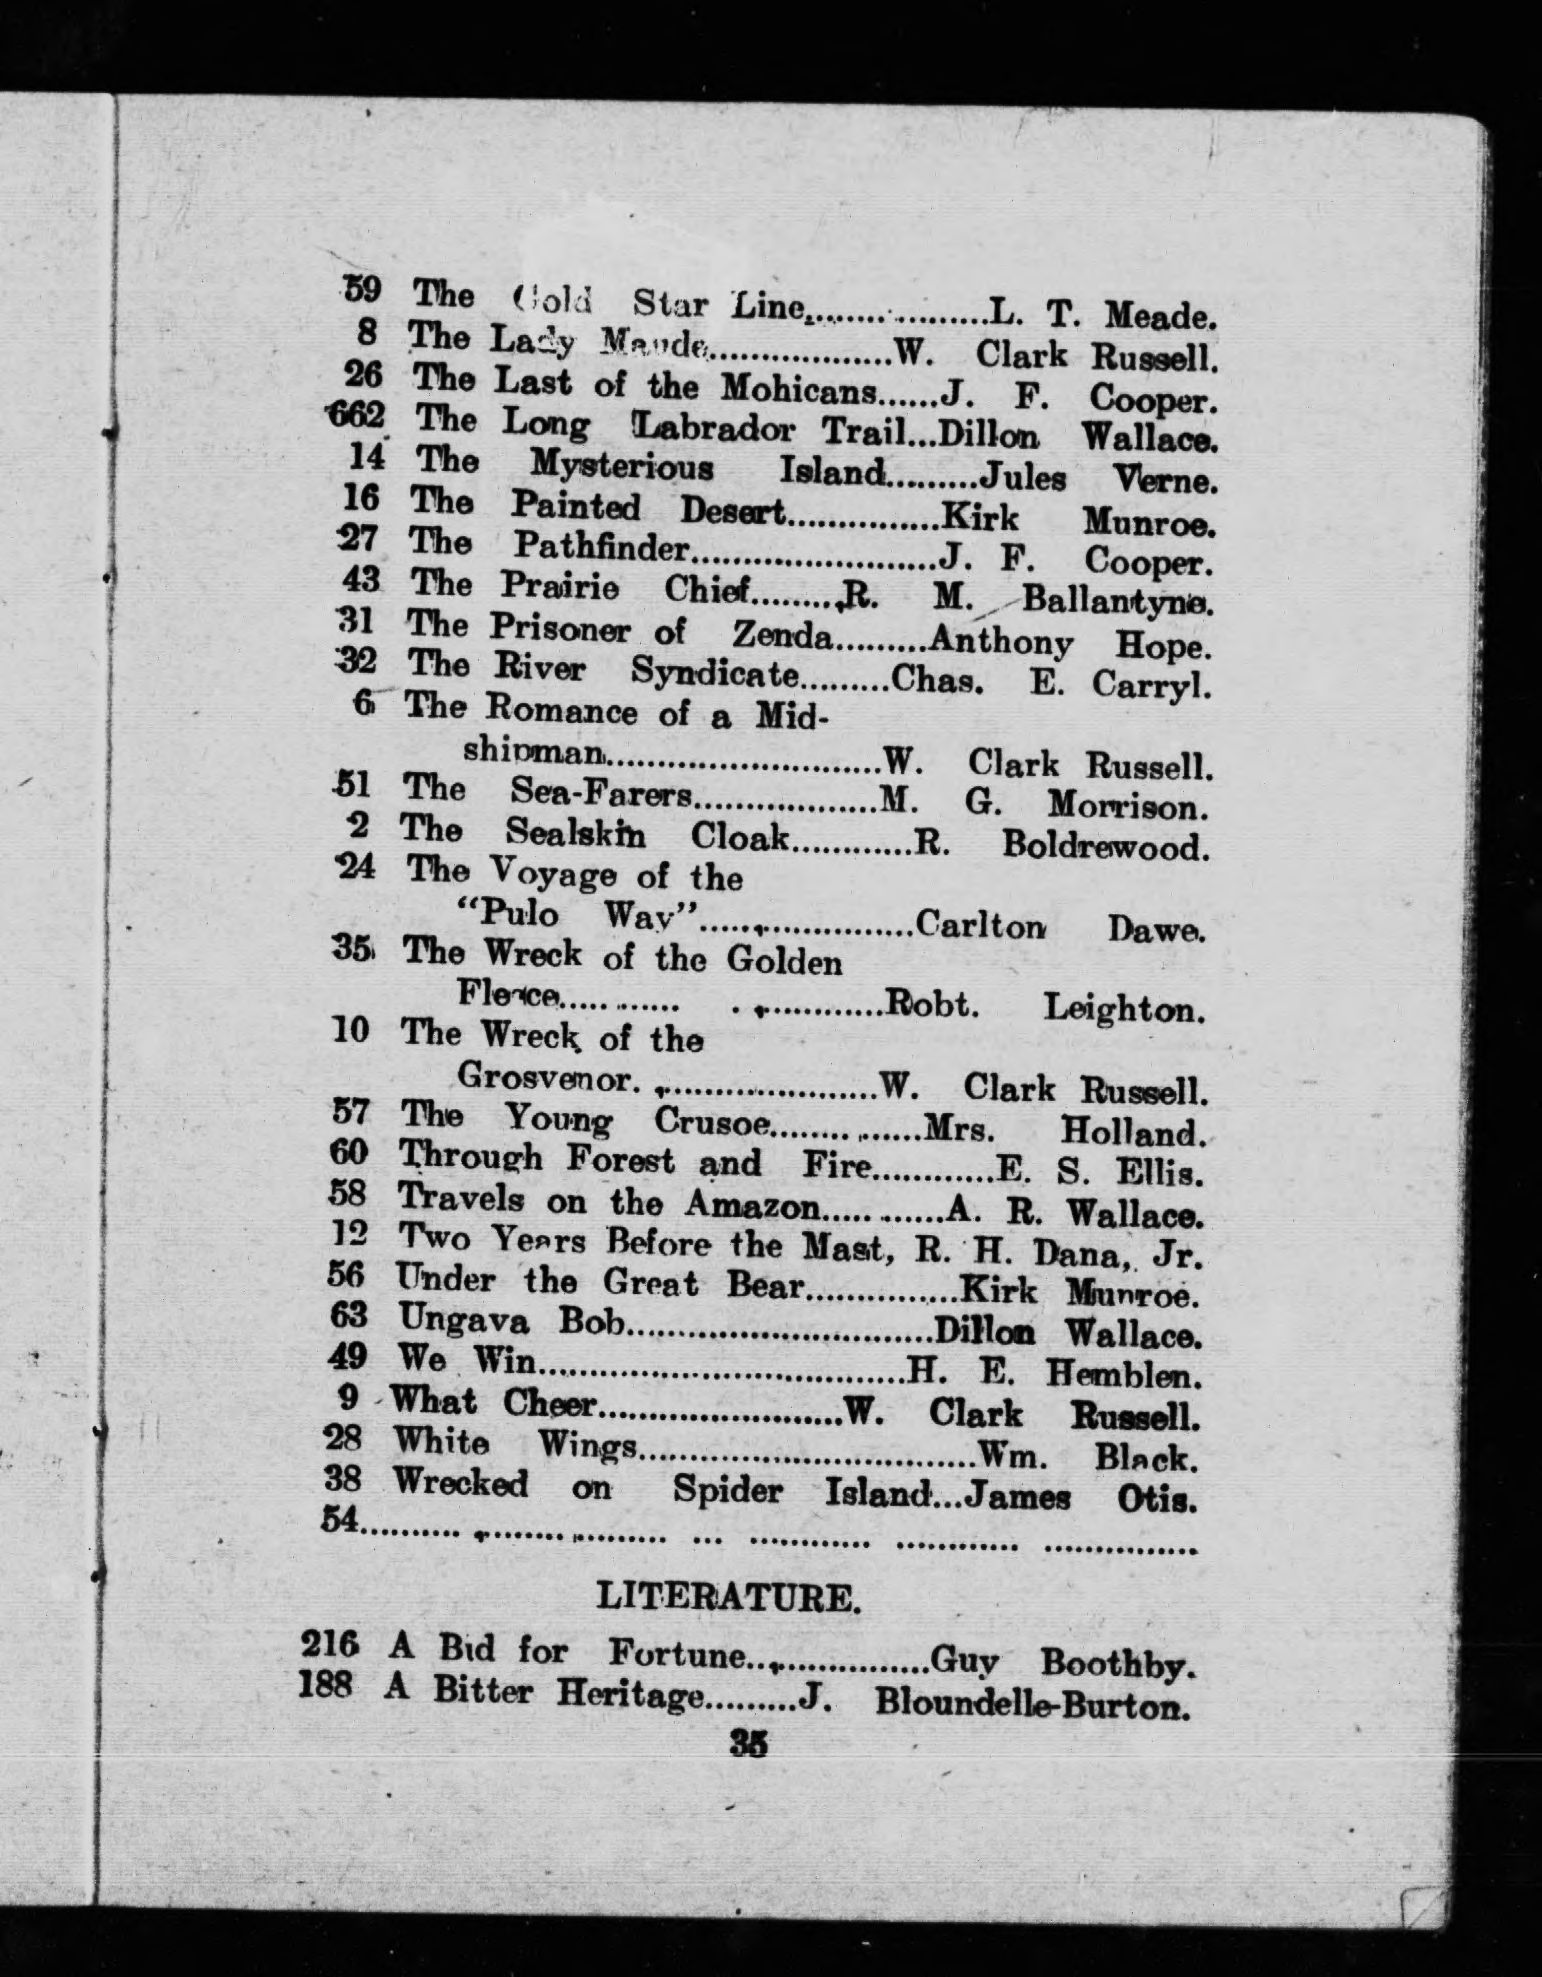 59 The Gold Star Line..................L. T. Meade.
8 The Lady Maude..................W. Clark Russell.
26 The Last of the Mohicans......J. F. Cooper.
662 The Long Labrador Trail...Dillon Wallace.
14 The Mysterious Island.........Jules Verne.
16 The Painted Desert...............Kirk Munroe.
27 The Pathfinder........................J. F. Cooper.
43 The Prairie Chief.........R. M. Ballantyne.
31 The Prisoner of Zenda.........Anthony Hope.
32 The River Syndicate.........Chas. E. Carryl.
6 The Romance of a Mid-
shipman...........................W. Clark Russell.
51 The Sea-Farers..................M. G. Morrison.
2 The Sealskin Cloak............R. Boldrewood.
24 The Voyage of the
"Pulo Way".....................Carlton Dawe.
35 The Wreck of the Golden
Fleece............ .............Robt. Leighton.
10 The Wreck of the
Grosvenor. .....................W. Clark Russell.
57 The Young Crusoe...............Mrs. Holland.
60 Through Forest and Fire............E. S. Ellis.
58 Travels on the Amazon............A. R. Wallace.
12 Two Years Before the Mast, R. H. Dana, Jr.
56 Under the Great Bear...............Kirk Munroe.
63 Ungava Bob..............................Dillon Wallace.
49 We Win....................................H. E. Hemblen.
9 What Cheer........................W. Clark Russell.
28 White Wings.................................Wm. Black.
38 Wrecked on Spider Island...James Otis.
54.......... ......... ......... ... ............ ............ ...............
LITERATURE.
216 A Bid for Fortune..................Guy Boothby.
188 A Bitter Heritage.........J. Bloundelle-Burton.
35